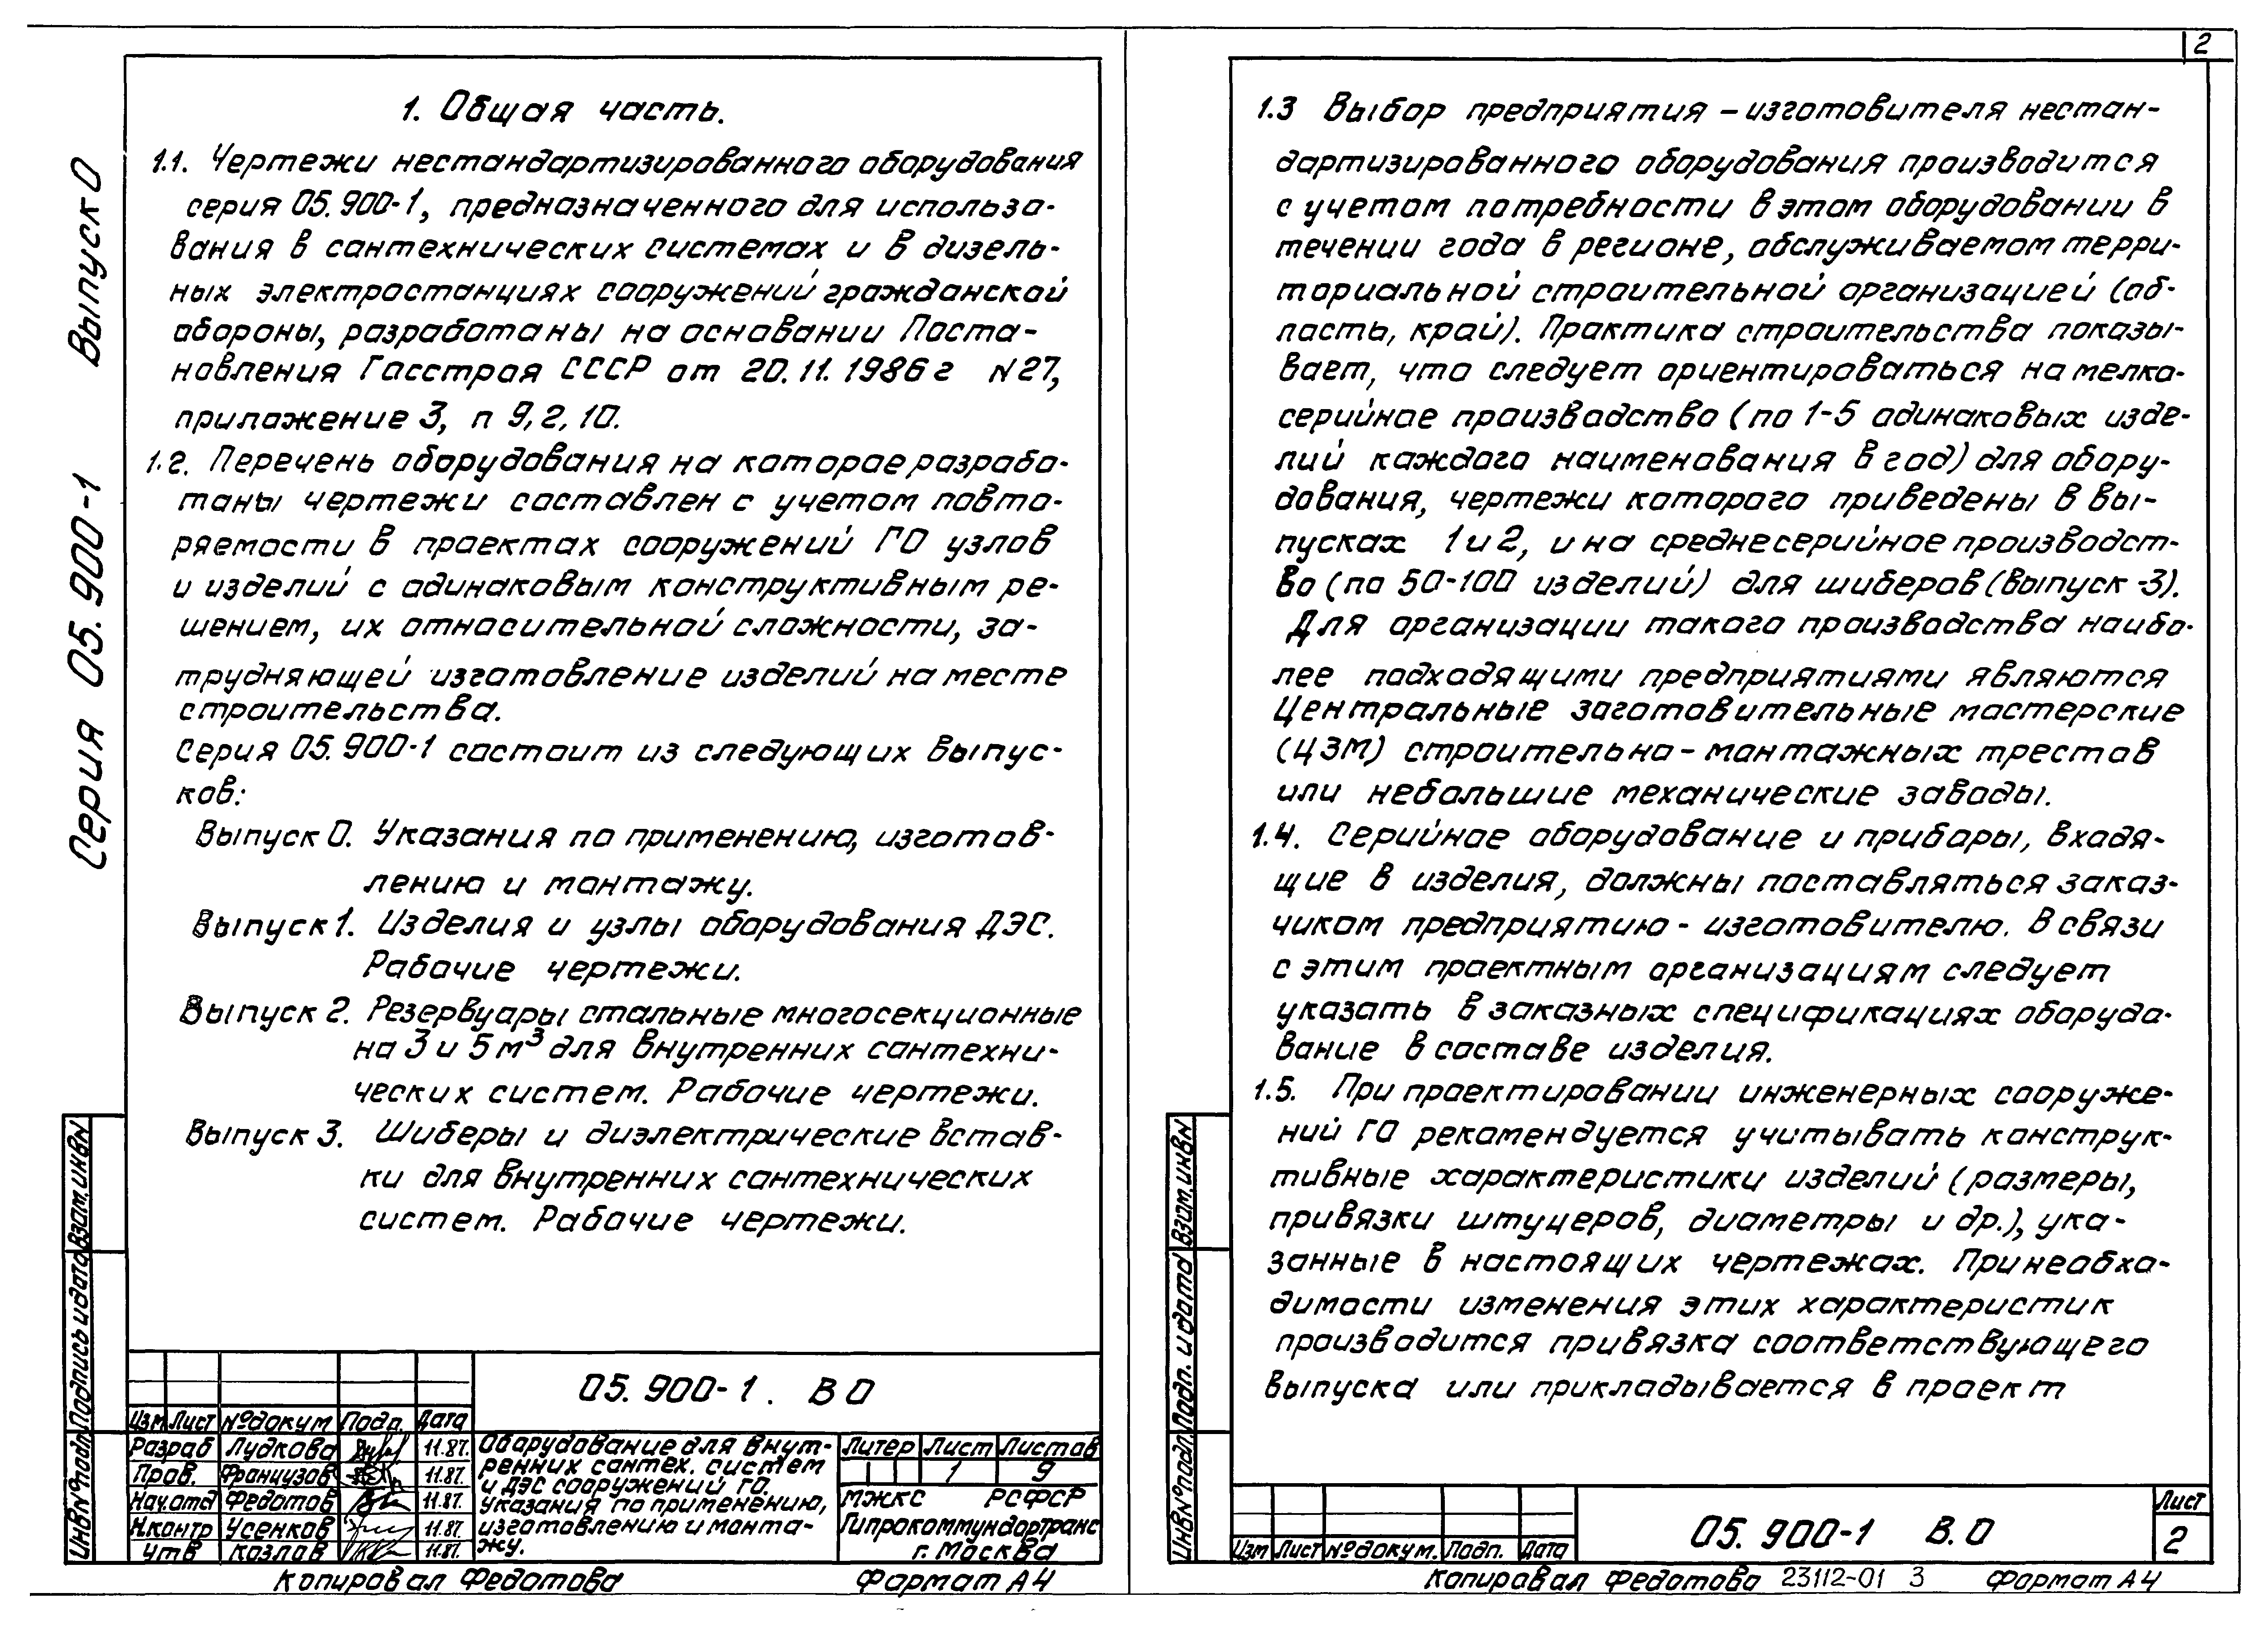 2
Серия 05.900-1 Выпуск 0
1. Общая часть.
1.1. Чертежи нестандартизированного оборудования
серия 05.900-1, предназначенного для использо-
вания в сантехнических системах и в дизель-
ных электростанциях сооружений гражданской
обороны, разработаны на основании Поста-
новления Госстроя СССР от 20.11.1986г N27,
приложение 3, п 9,2,10.
1.2. Перечень оборудования на которое разрабо-
таны чертежи составлен с учетом повто-
ряемости в проектах сооружений ГО узлов
и изделий с одинаковым конструктивным ре-
шением, их относительной сложности, за-
трудняющей изготовление изделий на месте
строительства.
Серия 05.900-1 состоит из следующих выпус-
ков:
Выпуск 0. Указания по применению, изготов-
лению и монтажу.
Выпуск 1. Изделия и узлы оборудования ДЭС.
Рабочие чертежи.
Выпуск 2. Резервуары стальные многосекционные
на 3 и 5 м³ для внутренних сантехни-
ческих систем. Рабочие чертежи.
Выпуск 3. Шиберы и диэлектрические встав-
ки для внутренних сантехнических
систем. Рабочие чертежи.
Взам. инв N
Подпись и дата
Инв № подл.
05.900-1. В 0
Изм Лист № докум Подп. Дата
Разраб Лудкова 11.87.
Пров. Французов 11.87.
Нач.отд Федотов 11.87.
Н.контр Усенков 11.87.
Утв Козлов 11.87.
Оборудование для внут-
ренних сантех. систем
и ДЭС сооружений ГО.
Указания по применению,
изготовлению и монта-
жу.
Литер Лист Листов
1 9
МЖКС РСФСР
Гипрокоммундортранс
г. Москва
Копировал Федотова Формат А4
1.3 Выбор предприятия - изготовителя нестан-
дартизированного оборудования производится
с учетом потребности в этом оборудовании в
течении года в регионе, обслуживаемом терри-
ториальной строительной организацией (об-
ласть, край). Практика строительства показы-
вает, что следует ориентироваться на мелко-
серийное производство (по 1-5 одинаковых изде-
лий каждого наименования в год) для обору-
дования, чертежи которого приведены в вы-
пусках 1 и 2, и на среднесерийное производст-
во (по 50-100 изделий) для шиберов (выпуск -3).
Для организации такого производства наибо-
лее подходящими предприятиями являются
Центральные заготовительные мастерские
(ЦЗМ) строительно - монтажных трестов
или небольшие механические заводы.
1.4. Серийное оборудование и приборы, входя-
щие в изделия, должны поставляться заказ-
чиком предприятию - изготовителю. В связи
с этим проектным организациям следует
указать в заказных спецификациях оборудо-
вание в составе изделия.
1.5. При проектировании инженерных сооруже-
ний ГО рекомендуется учитывать конструк-
тивные характеристики изделий (размеры,
привязки штуцеров, диаметры и др.), ука-
занные в настоящих чертежах. При необхо-
димости изменения этих характеристик
производится привязка соответствующего
выпуска или прикладывается в проект
Взам. инв N
Подп. и дата
Инв № подл.
Изм Лист № докум. Подп. Дата
05.900-1 В.0
Лист
2
Копировал Федотова 23112-01 3 Формат А4